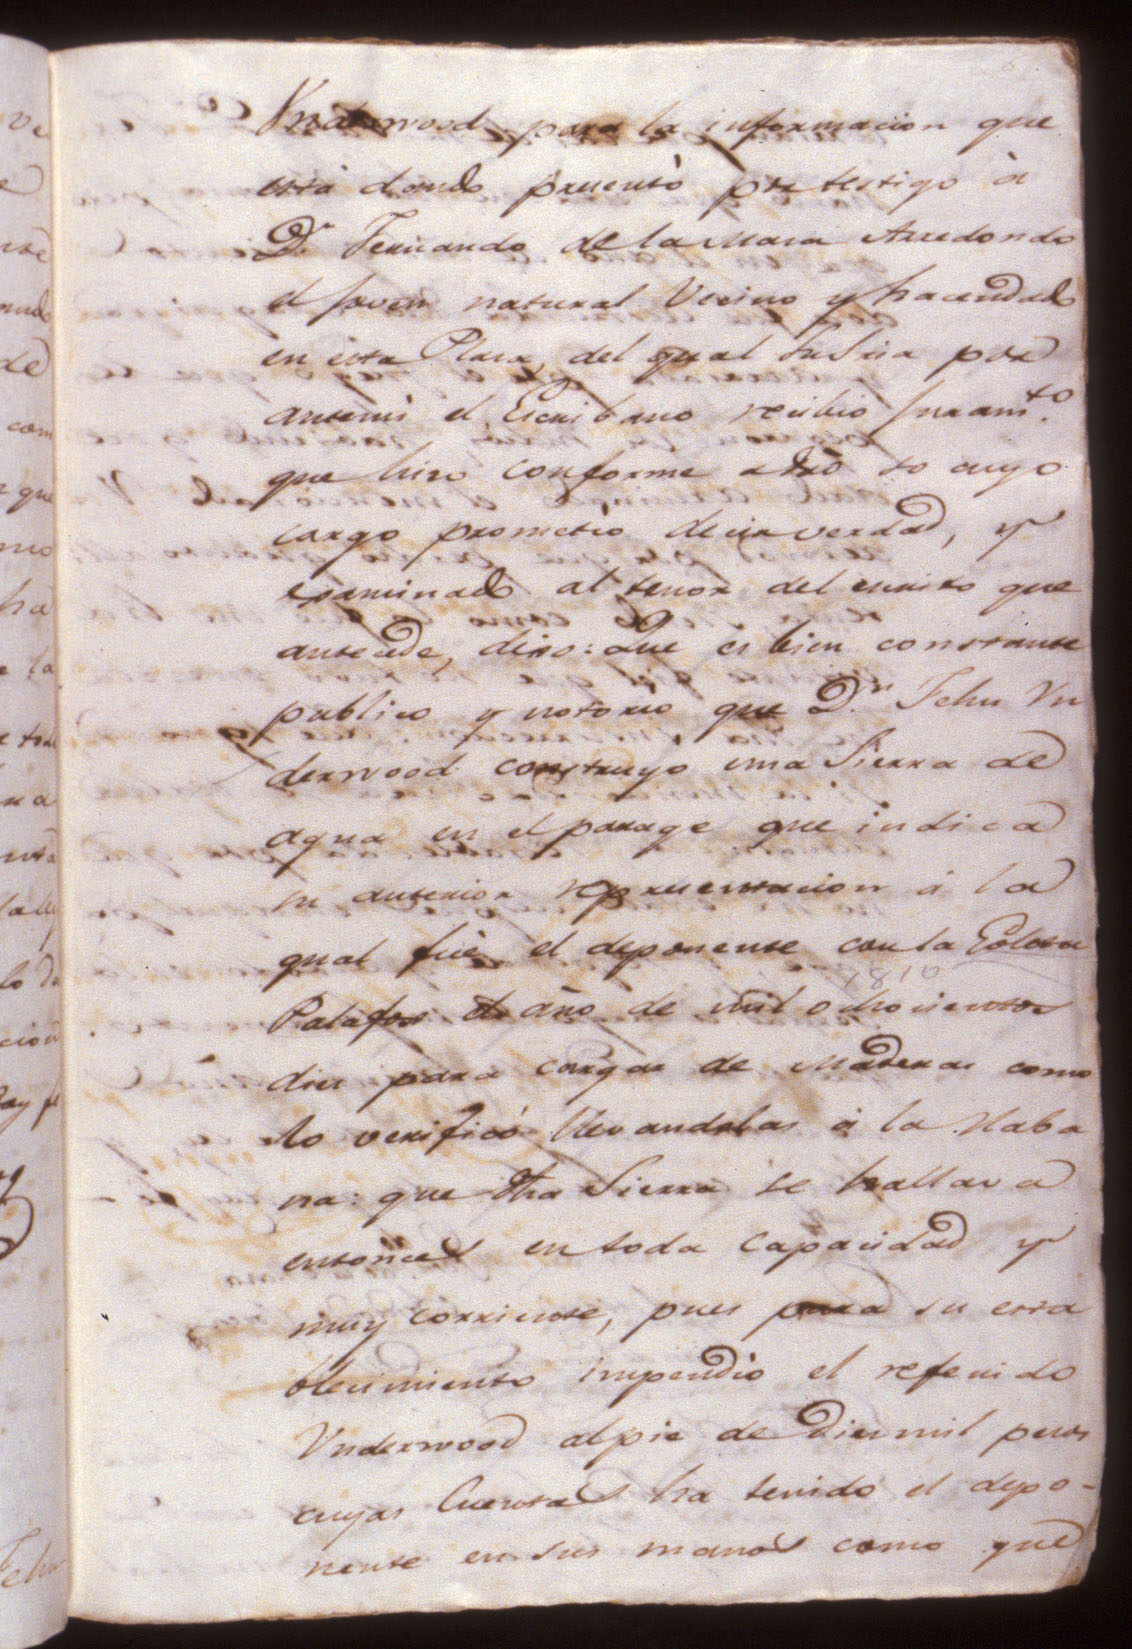 Underwood para la informacion que
está dando presentó por testigo à
Dn. Fernando de la Maza Arredondo
el Joven natural Vecino y hacendado
en esta Plaza, del qual Su Sria por
antemi el Escribano recibio Juramto.
que hizo conforme a dro so cuyo
cargo prometio decir verdad, y
examinado al tenor del escrito que
antecede, dixo: Que es bien constante
publico y notorio que Dn. Jehu Un
derwood construyo una Sierra de
agua en el parage que indica
su anterior representacion á la
qual fué el deponente con la Goleta
1810
Palafox el año de mil ochocientos
diez para cargar de Maderas como
lo verificó llevandolas á la Haba
na: que dha Sierra se hallava
entonces en toda capacidad y
muy corriente, pues para su esta
blecimiento impendiò el referido
Underwood al pie de Diez mil pesos
cuyas Cuentas ha tenido el depo-
nente en sus manos como que